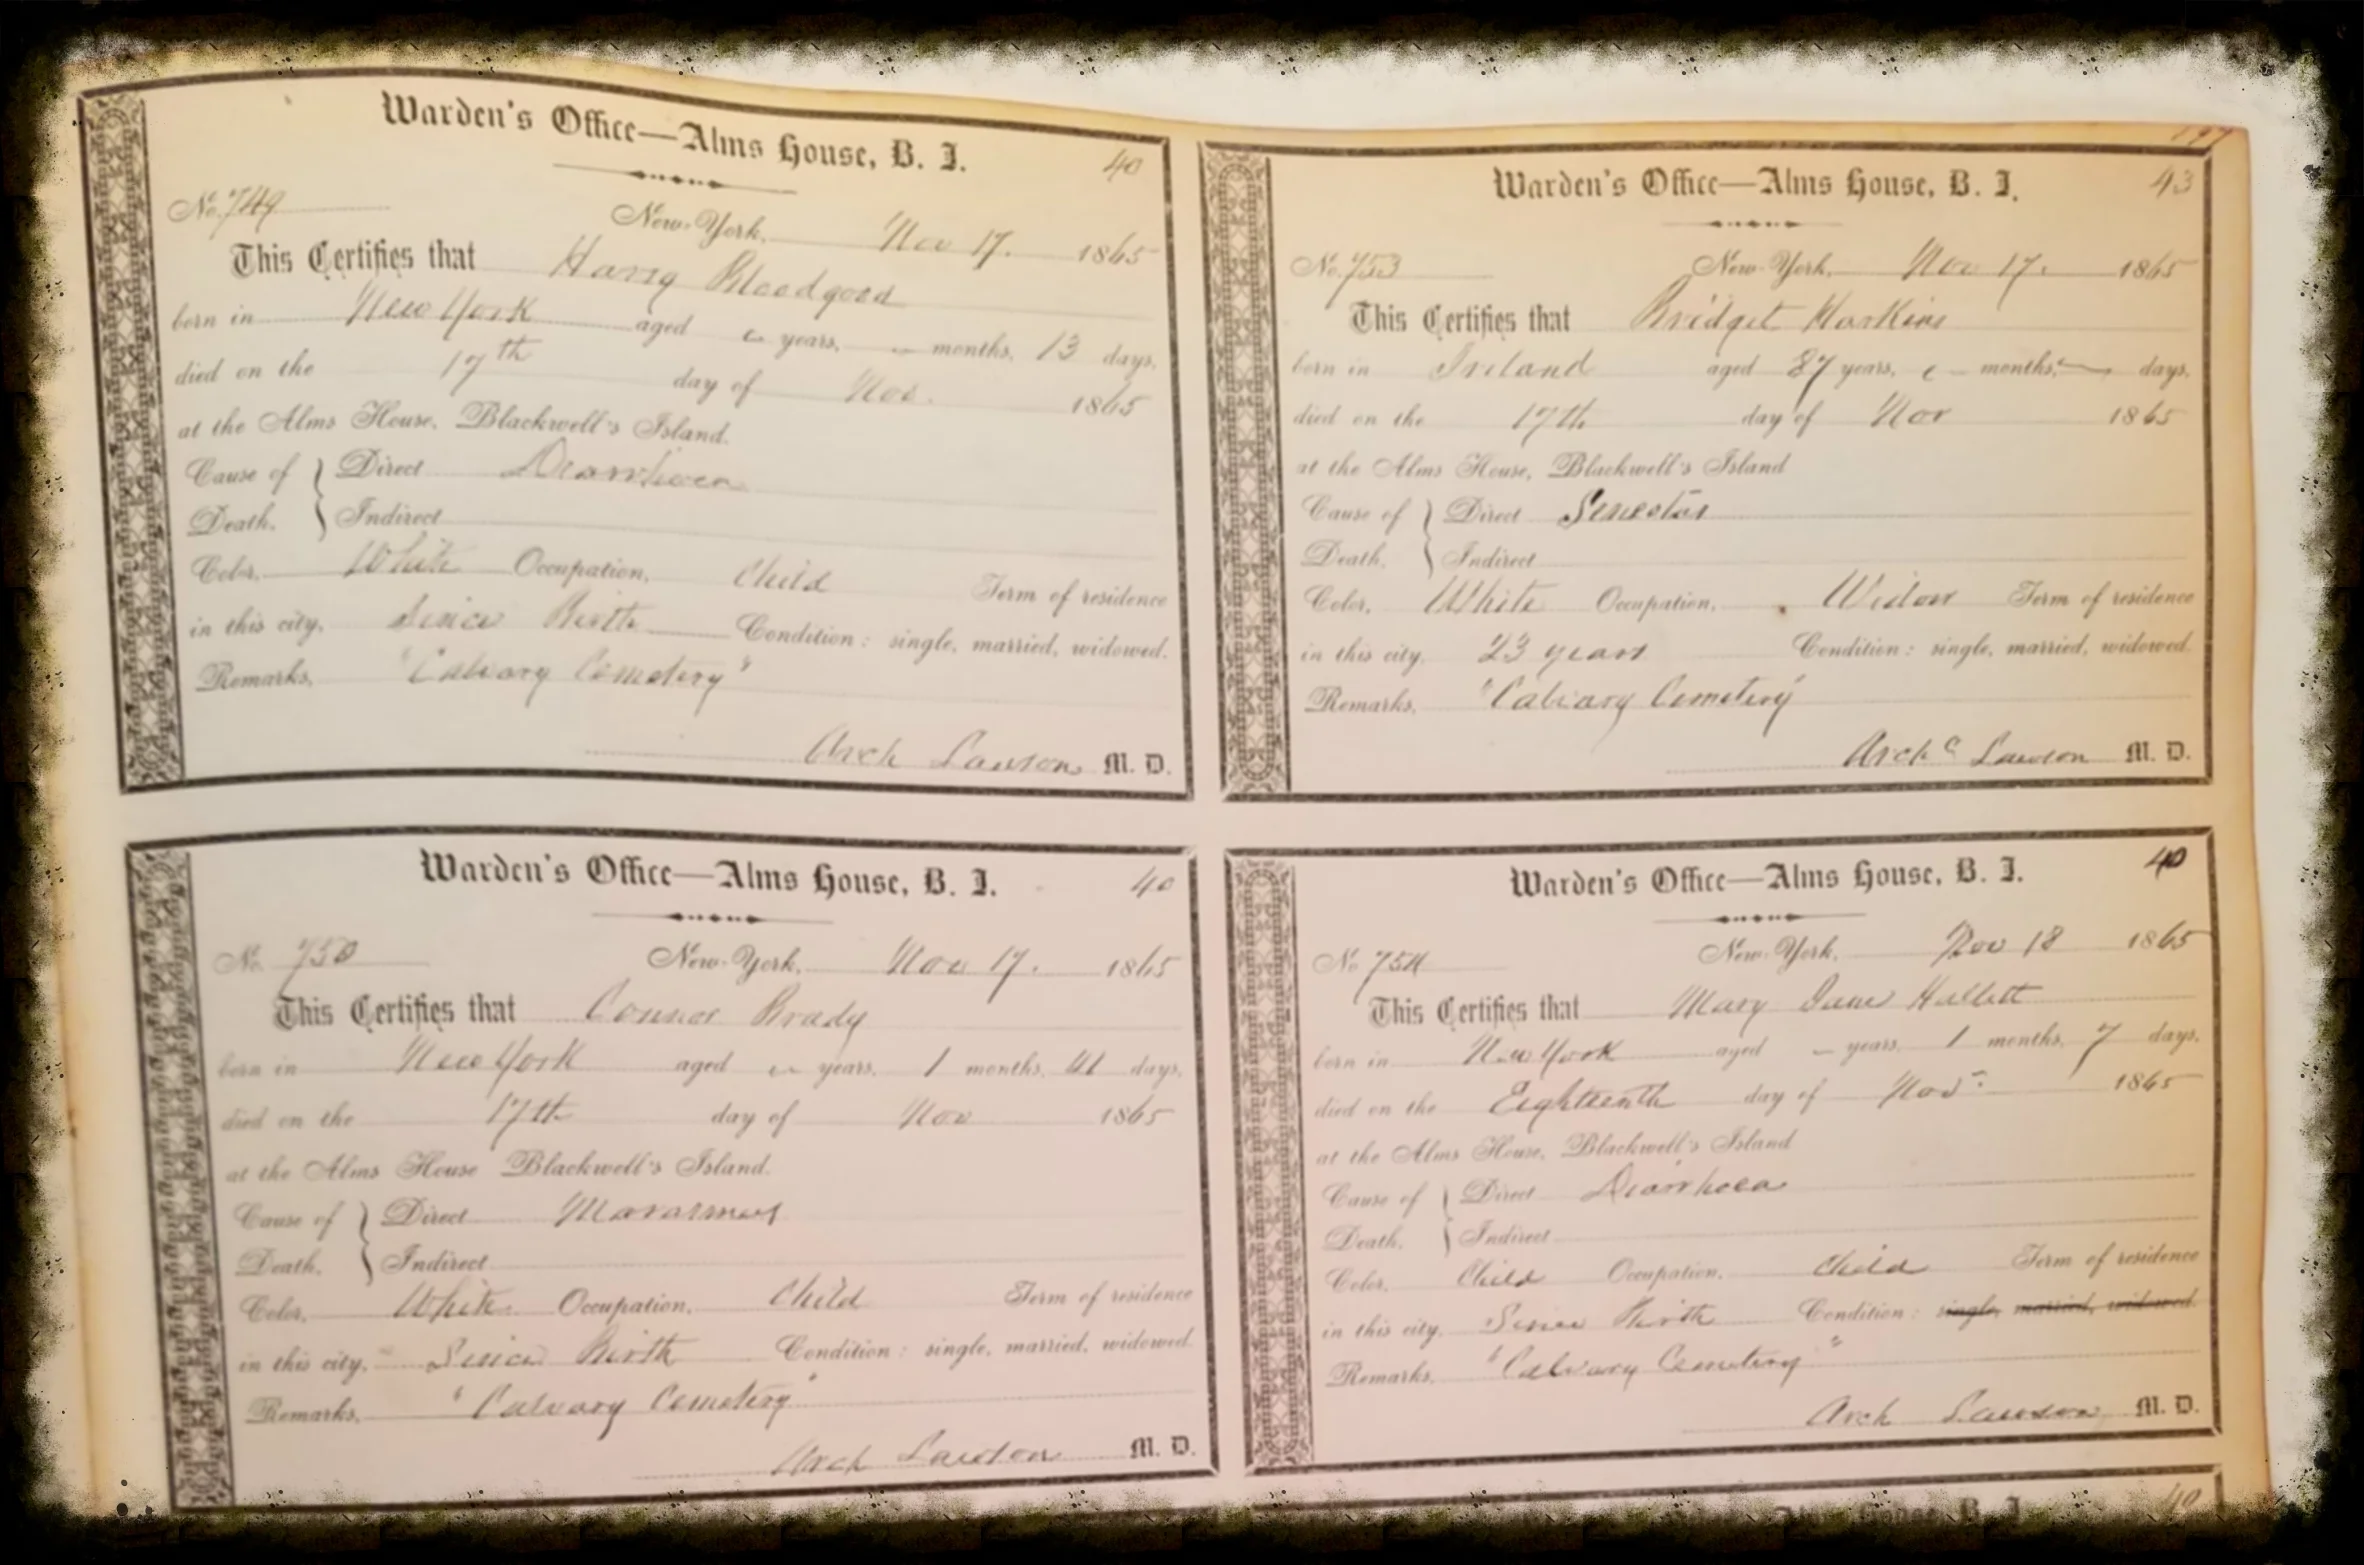 Warden's Office—Alms House, B. I. 40
No. 749
New-York, Nov 17. 1865
This Certifies that Harry Bloodgood
born in New York aged – years, – months, 13 days,
died on the 17th day of Nov. 1865
at the Alms House, Blackwell's Island.
Cause of Death. } Direct Diarrhoea
Indirect
Color, White Occupation, Child Term of residence
in this city, Since Birth Condition: single, married, widowed.
Remarks, "Calvary Cemetery"
Arch Lawson M. D.
197
Warden's Office—Alms House, B. I. 43
No. 753
New-York, Nov 17. 1865
This Certifies that Bridget Harkins
born in Ireland aged 87 years, – months, – days,
died on the 17th day of Nov 1865
at the Alms House, Blackwell's Island
Cause of Death. } Direct
Indirect
Color, White Occupation, Widow Term of residence
in this city, 23 years Condition: single, married, widowed.
Remarks, "Calvary Cemetery"
Archd Lawson M. D.
Warden's Office—Alms House, B. I. 40
No. 750
New-York, Nov 17. 1865
This Certifies that Connor Brady
born in New York aged – years, 1 months, days,
died on the 17th day of Nov 1865
at the Alms House Blackwell's Island.
Cause of Death. } Direct Marasmus
Indirect
Color, White Occupation, Child Term of residence
in this city, Since Birth Condition: single, married, widowed.
Remarks, "Calvary Cemetery"
Arch Lawson M. D.
Warden's Office—Alms House, B. I. 40
No 754
New-York, Nov 18 1865
This Certifies that Mary Jane Hallett
born in New York aged – years, 1 months, 7 days,
died on the Eighteenth day of Nov. 1865
at the Alms House, Blackwell's Island
Cause of Death. } Direct Diarrhoea
Indirect
Color, Child Occupation, Child Term of residence
in this city, Since Birth Condition: single, married, widowed.
Remarks, "Calvary Cemetery"
Arch Lawson M. D.
Alms House, B. I. 40